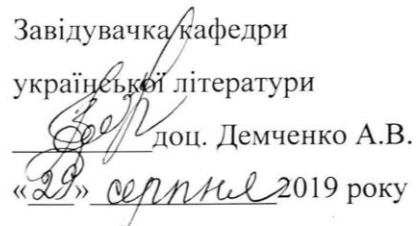 Завідувачка кафедри
української літератури
доц. Демченко А.В.
«29» серпня 2019 року